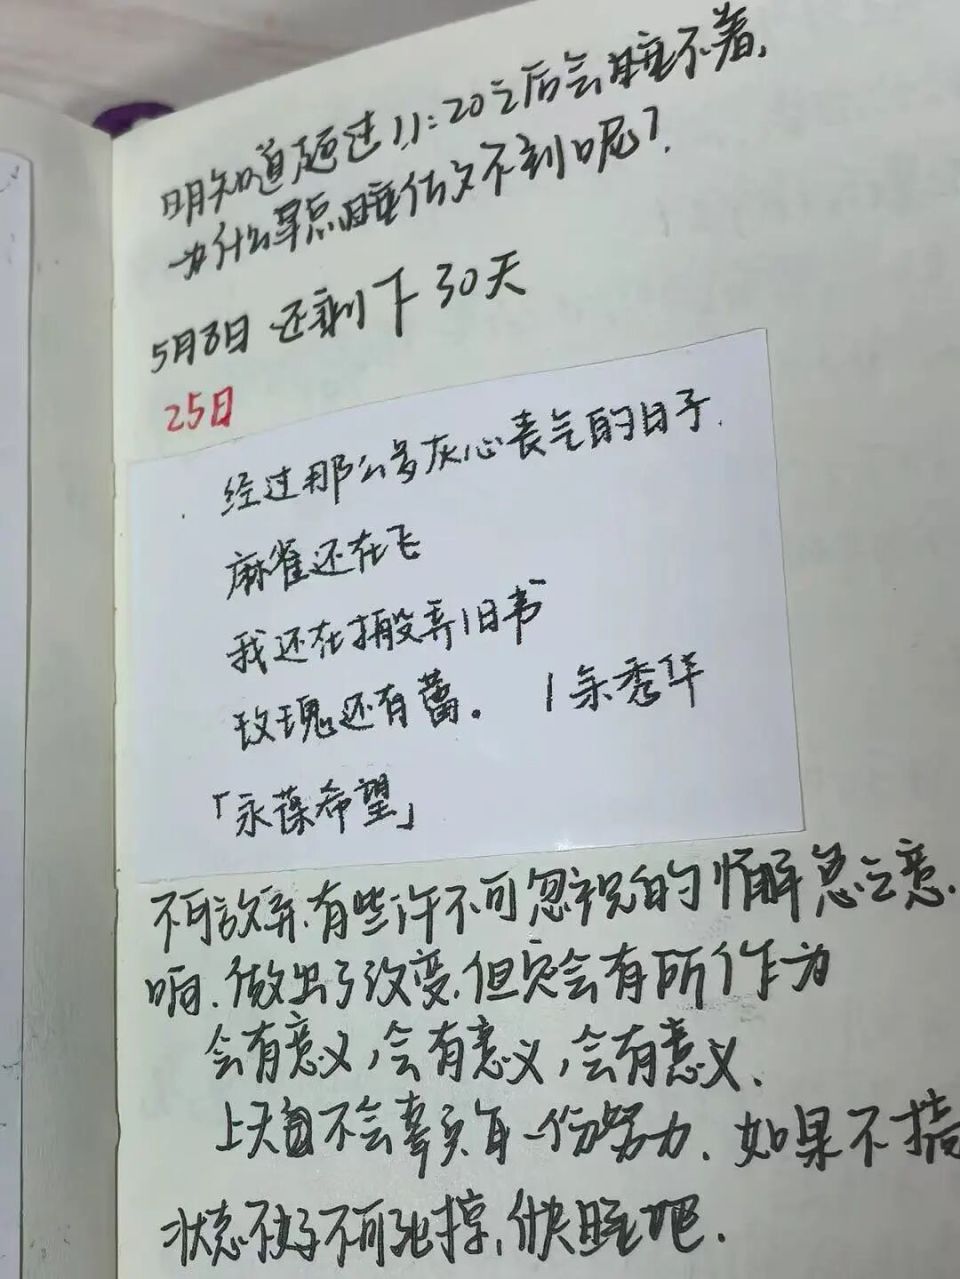 明知道超过11:20之后会睡不着,
为什么早点睡估欠不到呢?
5月8日 还剩下30天
25日
经过那么多灰心丧气的日子.
麻雀还在飞
我还在搬弄旧书
玫瑰还有蕾。 | 余秀华
「永葆希望」
不可放弃.有些许不可忽视的 急之意.
啊.做出了改变,但定会有所作为
会有意义,会有意义,会有意义.
上天自不会辜负每一份努力.如果不搞
状态不好不可死撑,快睡吧.